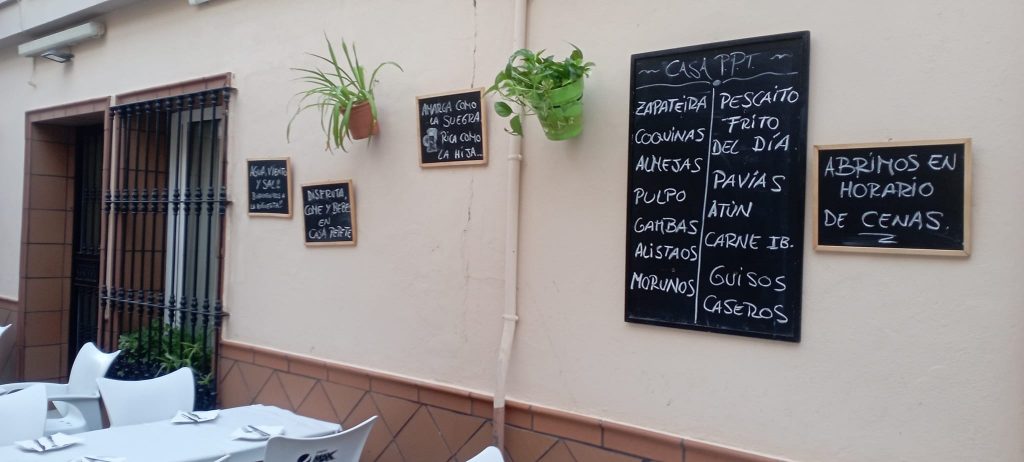 AGUA, VIENTO
Y SAL!!
DISFRUTA
COME Y BEBE
EN
CASA PEPETE
AMARGA COMO
LA SUEGRA
RICA COMO
LA HIJA...
CASA P.P.T.
ZAPATEIRA
COQUINAS
ALMEJAS
PULPO
GAMBAS
ALISTAOS
MORUNOS
PESCAITO
FRITO
DEL DÍA
PAVÍAS
ATÚN
CARNE IB.
GUISOS
CASEROS
ABRIMOS EN
HORARIO
DE CENAS.